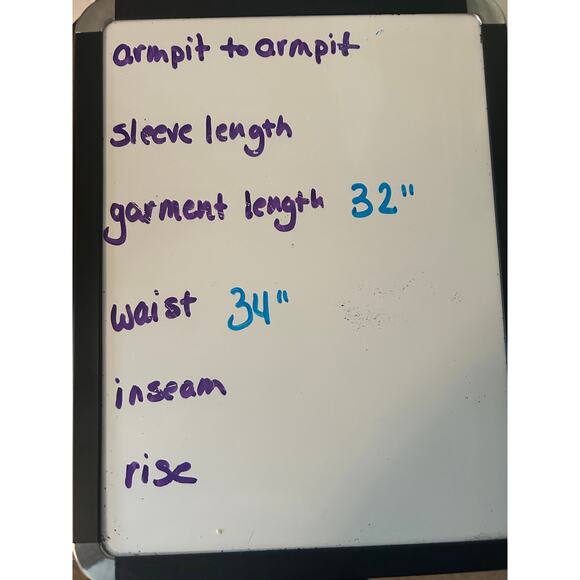 armpit to armpit
sleeve length
garment length 32"
waist 34"
inseam
rise